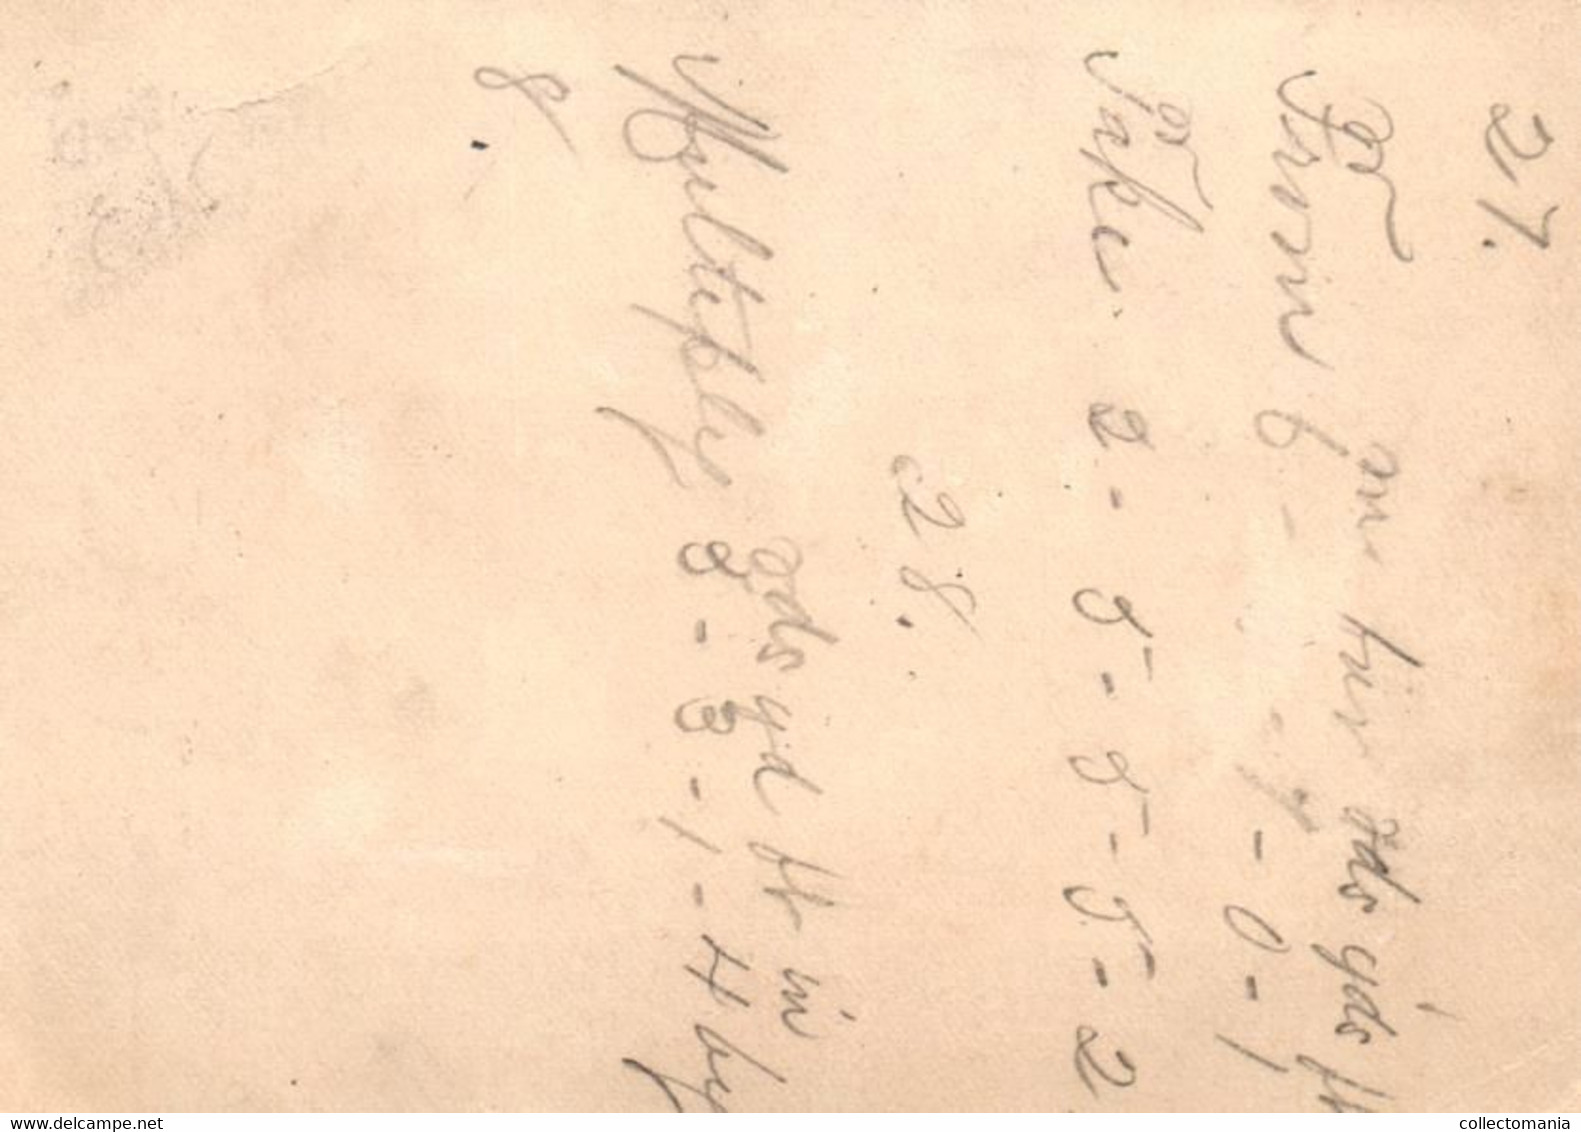 27.
m fur rds yds ft
From 6 - 7 - 0 - 1
Take 2 - 5 - 5 - 5 - 2
28.
rds yd ft in
Multiply 8 - 3 - 1 - 4 by
8.
delcampe.net
collectomania